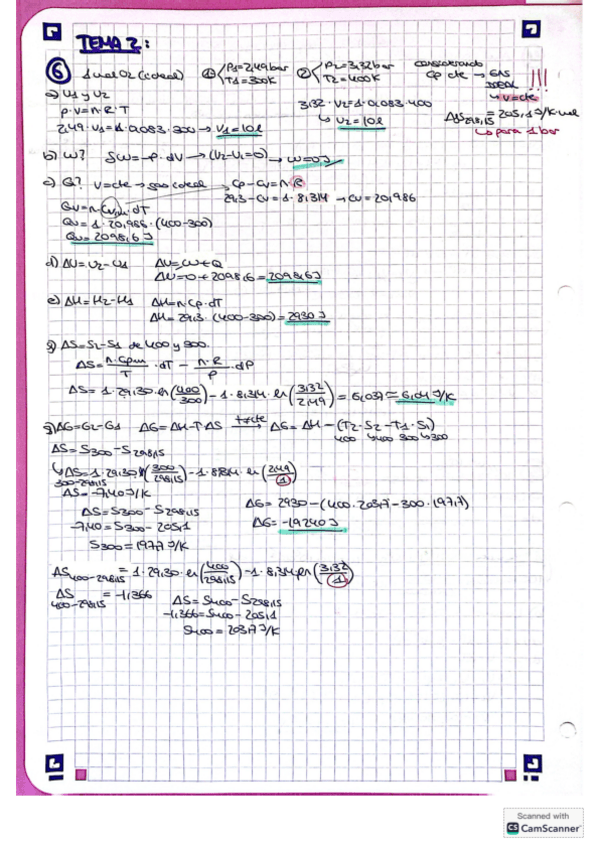 TEMA 2:
6 1 mol O2 (ideal) 1 P1=2,49bar T1=300K 2 P2=3,32bar T2=400K considerando Cp cte → GAS IDEAL !!!
↳ V=cte
a) V1 y V2
P·V=n·R·T
2,49·V1=1·0,083·300 → V1=10l
3,32·V2=1·0,083·400
↳ V2=10l
ΔS298,15 = 205,1 J/K·mol
↳ para 1 bar
b) W? δW=-P·dV → (V2-V1=0) → W=0J
c) Q? V=cte → gas ideal → Cp-Cv=n·R
29,3-Cv=1·8,314 → Cv=20,986
Qv=n·Cv,m·dT
Qv=1·20,986·(400-300)
Qv=2098,6J
d) ΔU=U2-U1 ΔU=W+Q
ΔU=0+2098,6=2098,6J
e) ΔH=H2-H1 ΔH=n·Cp·dT
ΔH=29,3·(400-300)=2930J
f) ΔS=S2-S1 de 400 y 300.
ΔS= n·Cpm/T ·dT - n·R/P ·dP
ΔS=1·29,30·ln(400/300)-1·8,314·ln(3,32/2,49)=6,037≈6,04J/K
g) ΔG=G2-G1 ΔG=ΔH-T·ΔS T≠cte → ΔG=ΔH-(T2·S2-T1·S1)
400 ↳400 300 ↳300
ΔS=S300-S298,15
↳ ΔS300-298,15=1·29,30·ln(300/298,15)-1·8,314·ln(2,49/1)
ΔS=-7,40J/K
ΔS=S300-S298,15
-7,40=S300-205,1
S300=197,7J/K
ΔG=2930-(400·203,7-300·197,7)
ΔG=-19240J
ΔS400-298,15=1·29,30·ln(400/298,15)-1·8,314·ln(3,32/1)
ΔS400-298,15=-1,366
ΔS=S400-S298,15
-1,366=S400-205,1
S400=203,7J/K
Scanned with
CS CamScanner